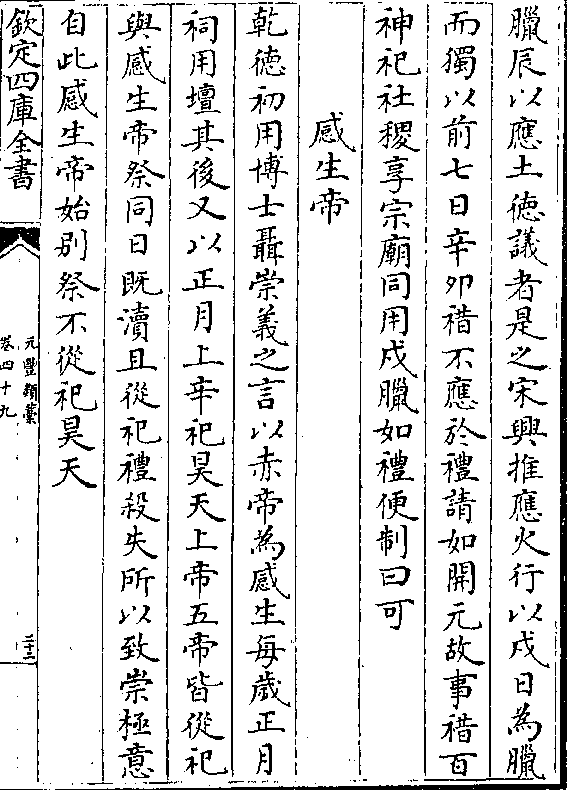 臘辰以應土徳議者是之宋興推應火行以戍日為臘
而獨以前七日辛卯䄍不應於禮請如開元故事䄍百
神祀社稷享宗廟同用戍臘如禮便制曰可
感生帝
乾徳初用博士聶崇義之言以赤帝為感生每歲正月
祠用壇其後又以正月上辛祀昊天上帝五帝皆從祀
與感生帝祭同日既瀆且從祀禮殺失所以致崇極意
自此感生帝始别祭不從祀昊天
欽定四庫全書
元豐類藁
卷四十九
二十三